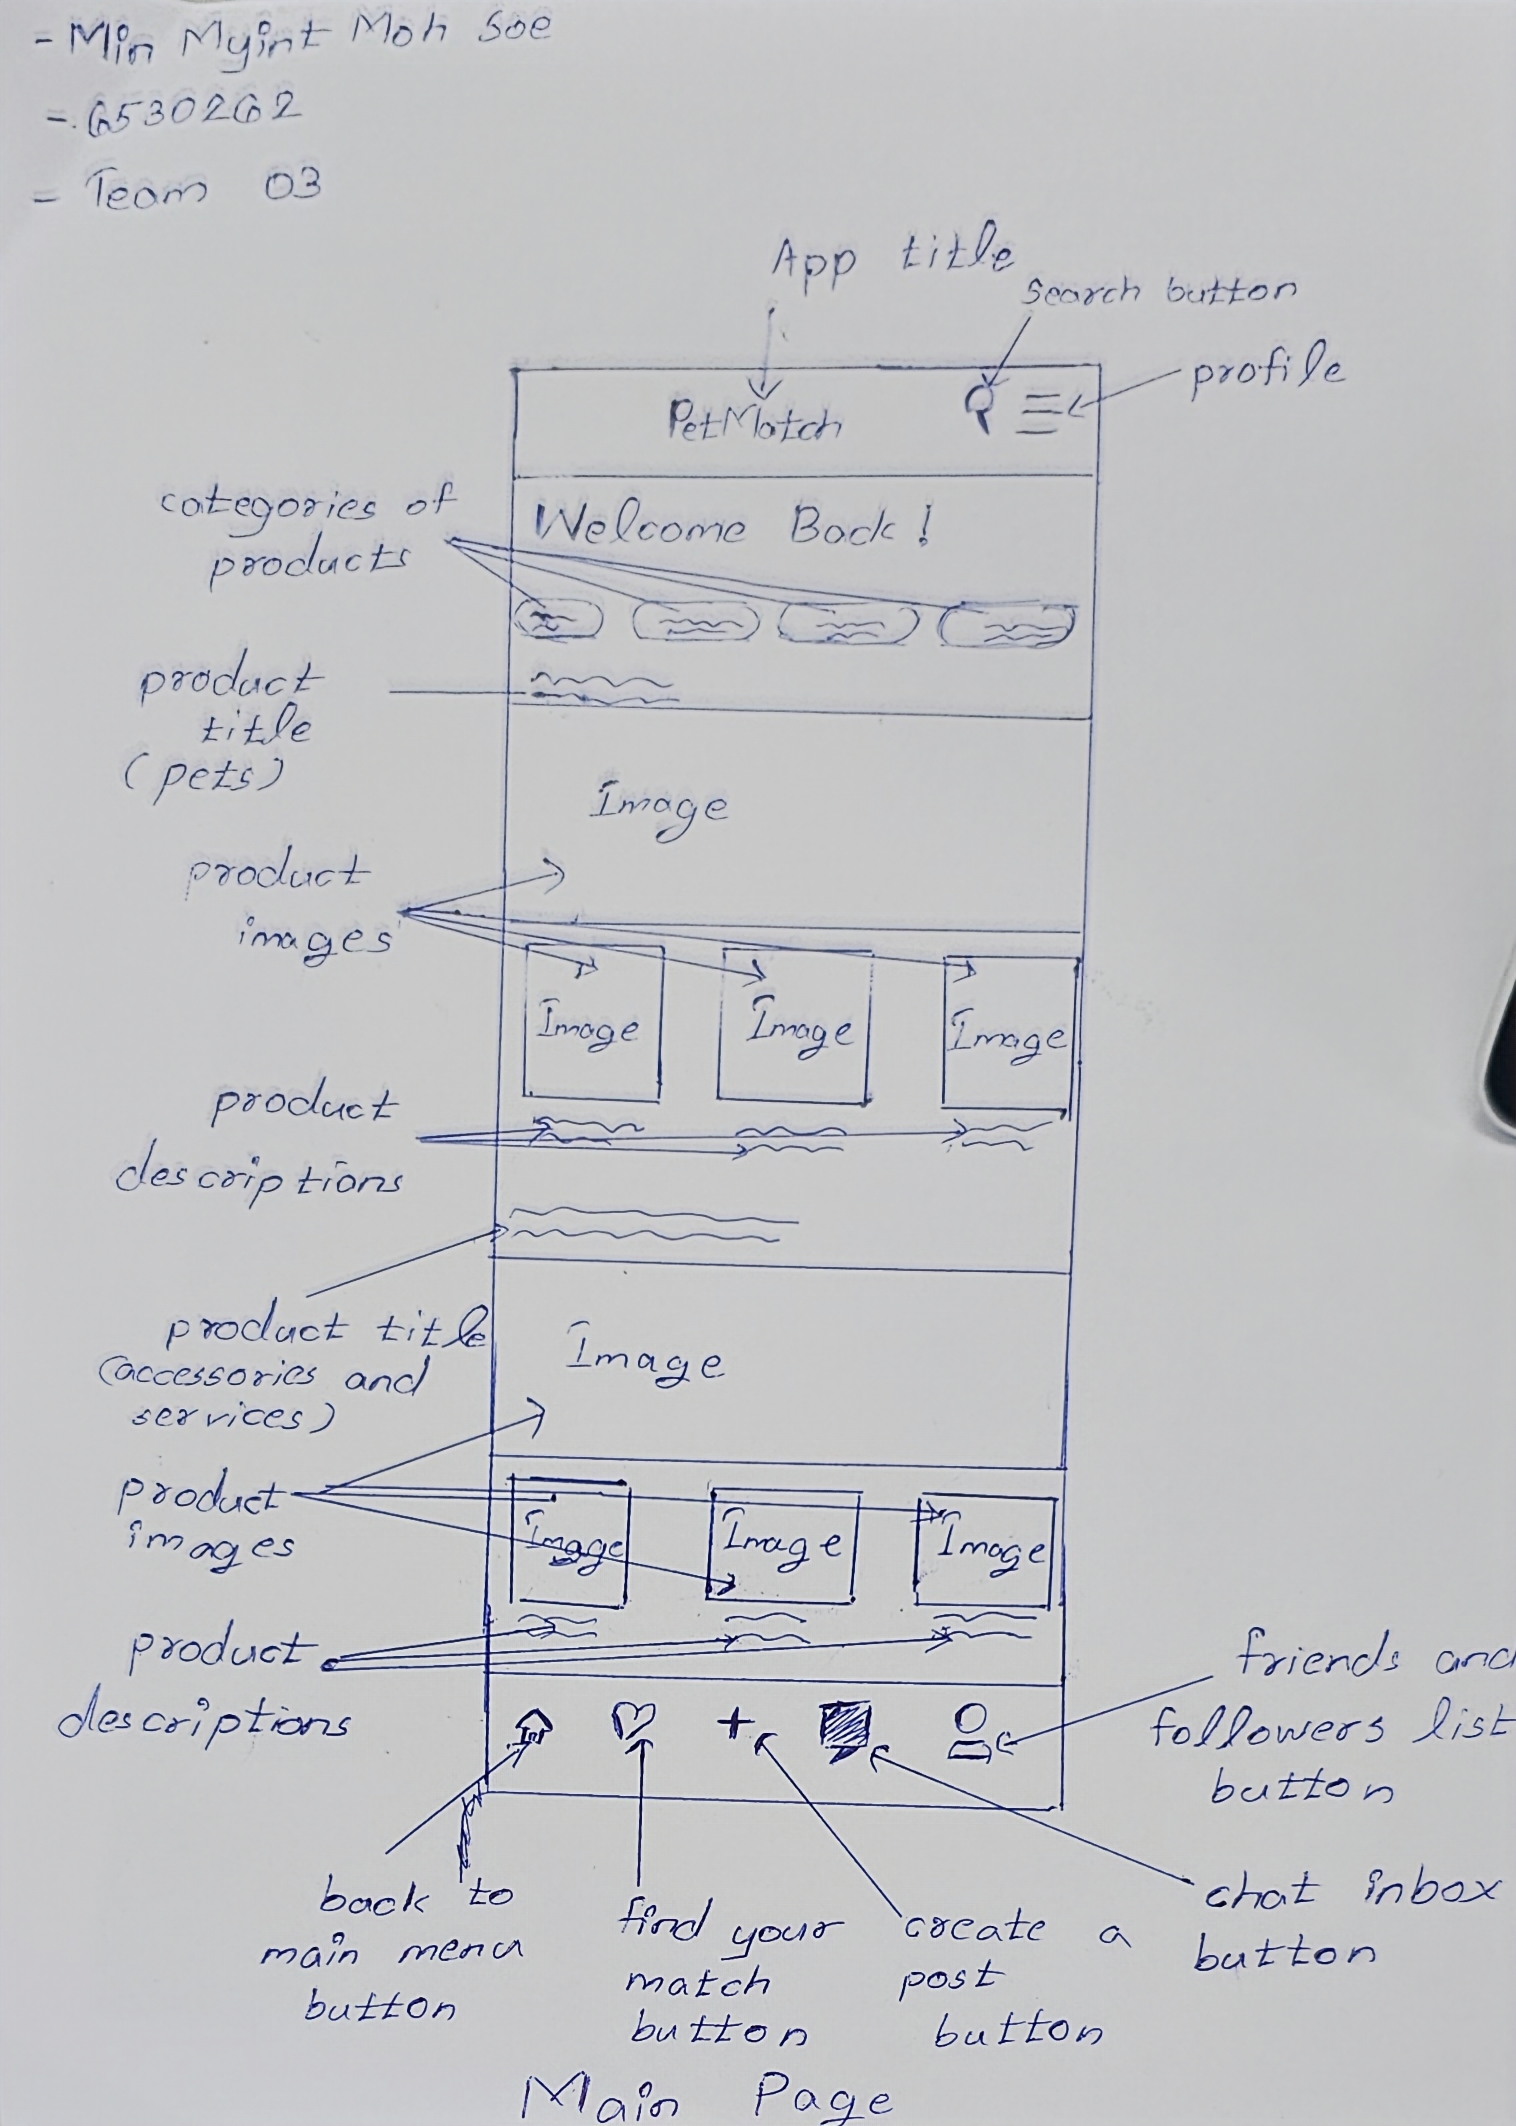 - Min Myint Moh Soe
- 6530262
- Team 03
App title
search button
profile
PetMatch
categories of
products
Welcome Back!
product
title
(pets)
Image
product
images
Image Image Image
product
descriptions
product title
(accessories and
services)
Image
product
images
Image Image Image
product
descriptions
friends and
followers list
button
back to
main menu
button
find your
match
button
create a
post
button
chat inbox
button
Main Page